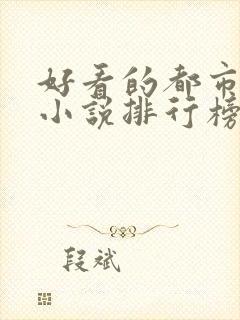 好看的都市
小说排行榜
段斌